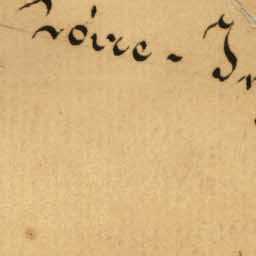 Loire - In